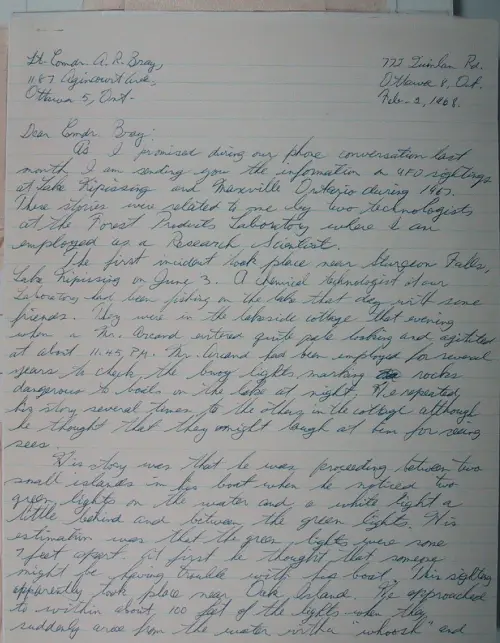 Lt. Comdr. A. R. Bray,
1187 Agincourt Ave,
Ottawa 5, Ont.
Rd.
Ottawa 8, Ont.
Feb. 2, 1968.
Dear Comdr. Bray:
As I promised during our phone conversation last
month, I am sending you the information on UFO sightings
at Lake Nipissing and Maxville Ontario during 1967.
These stories were related to me by two technologists
at the Forest Products Laboratory where I am
employed as a Research Scientist.
The first incident took place near Sturgeon Falls,
Lake Nipissing on June 3. A chemical technologist at our
Laboratory had been fishing on the lake that day with some
friends. They were in the lakeside cottage that evening
when a Mr. Arcand entered quite pale looking and agitated
at about 11:45 P.M. Mr. Arcand had been employed for several
years to check the buoy lights marking rocks
dangerous to boats on the lake at night. He repeated
his story several times to the others in the cottage although
he thought that they might laugh at him for seeing
sees.
His story was that he was proceeding between two
small islands in his boat when he noticed two
green lights on the water and a white light a
little behind and between the green lights. His
estimation was that the green lights were some
7 feet apart. At first he thought that someone
might be having trouble with his boat. This sighting
apparently took place near Oak Island. He approached
to within about 100 feet of the lights when they
suddenly arose from the water with a "whoosh" and